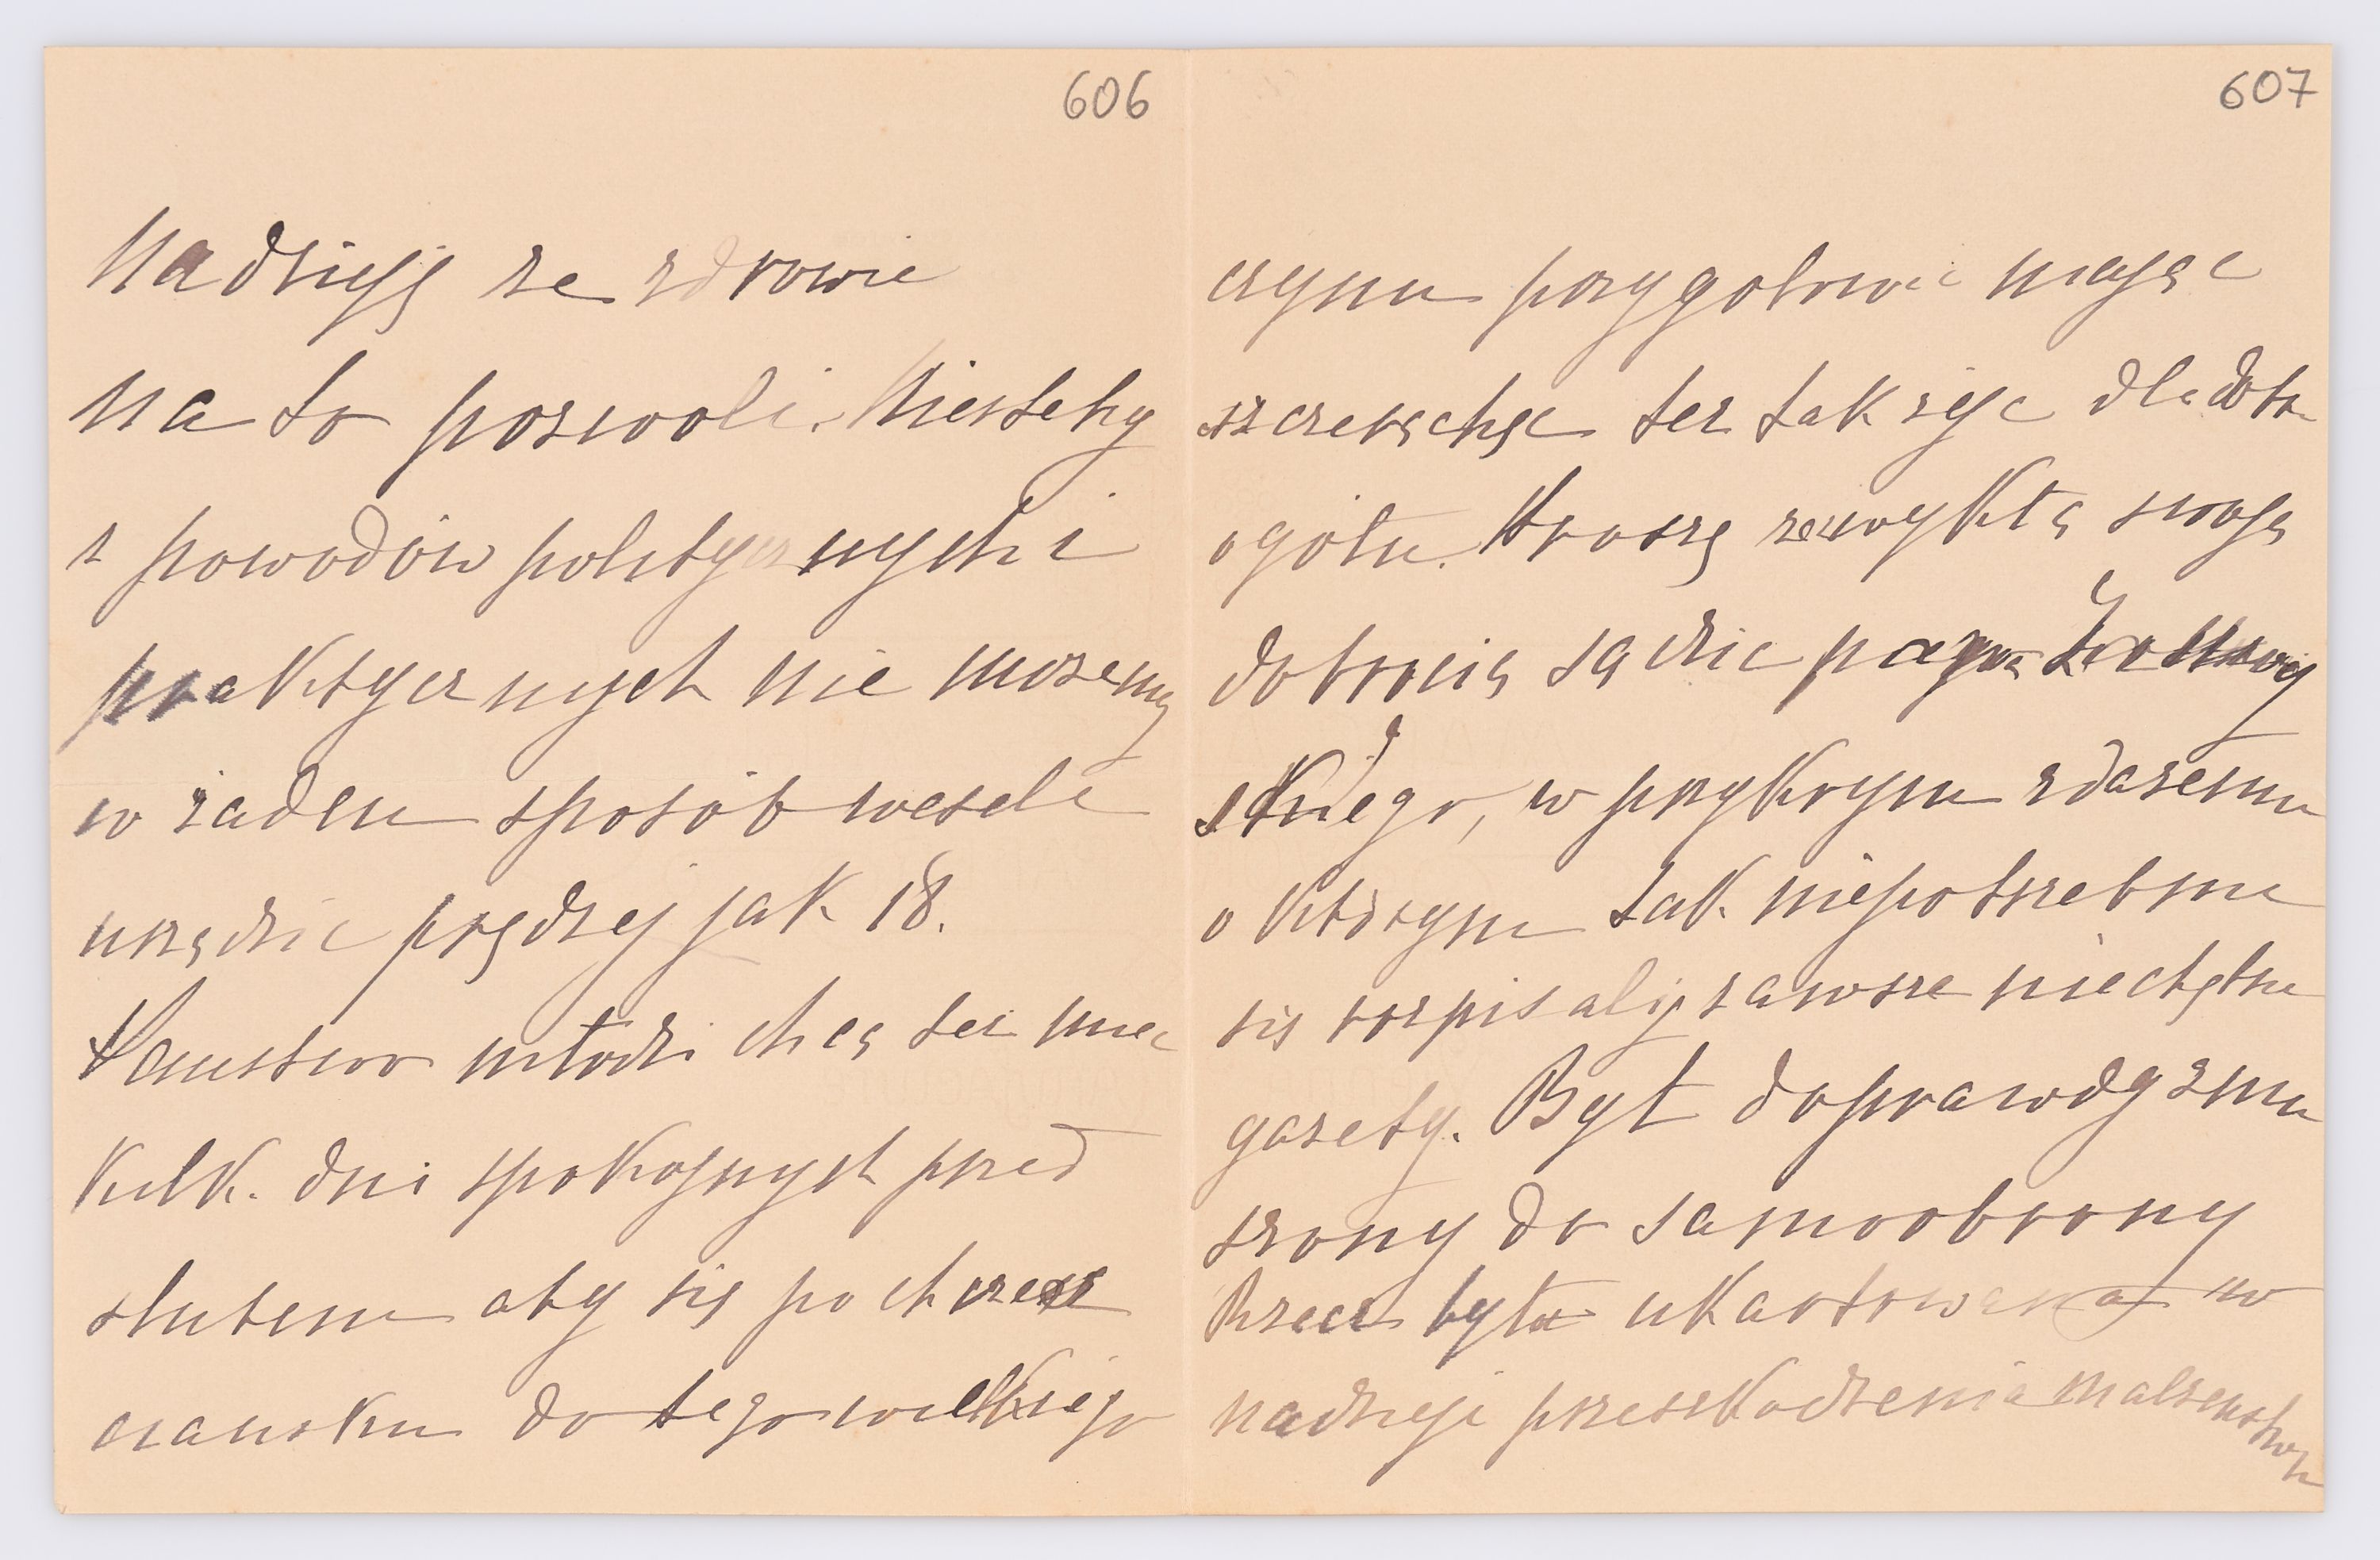 606
Nadzieję ze zdrowie
na to pozwoli. Niestety
z powodów politycznych i
praktycznych nie mozemy
w żaden sposób wesele
urządzic prędzej jak 18.
Panstwo młodzi chcą tez miec
kilk. dni spokojnych przed
slubem aby się po chrzesc
ciansku do tego wielkiego
607
czynu przygotowac mając
szczerą chęc tez tak zyc dla dobra
ogółu. Proszę zwykłą swoją
dobrocią sądzic
skiego, w przykrym zdazeniu
o którym tak niepotrzebnie
się rozpisaly zawsze niechętne
gazety. Był doprawdy zmu
szony do samoobrony
Rzecz była ukartowana w
nadzieji przeszkodzenia malzenstwu